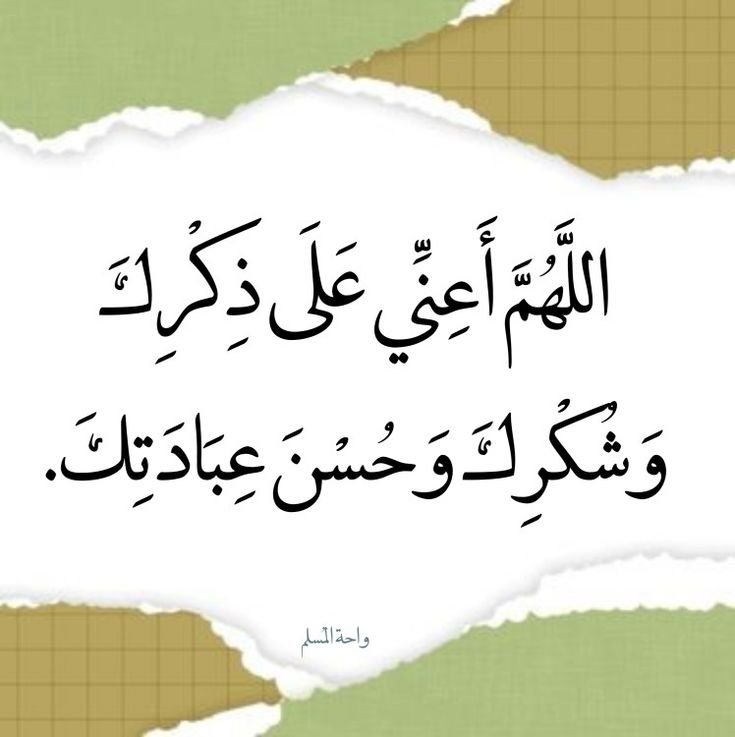 اللَّهُمَّ أَعِنِّي عَلَى ذِكْرِكَ
وَشُكْرِكَ وَحُسْنَ عِبَادَتِكَ.
واحة المسلم